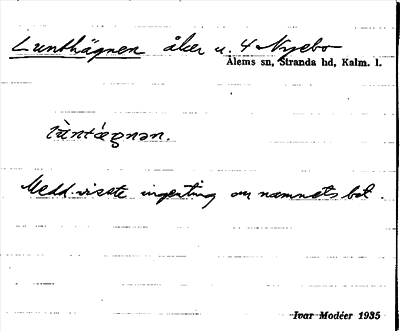 Lunthägnen åker u. 4 Nyebo
Ålems sn, Stranda hd, Kalm. l.
Medd. visste ingenting om namnets bet.
Ivar Modéer 1935